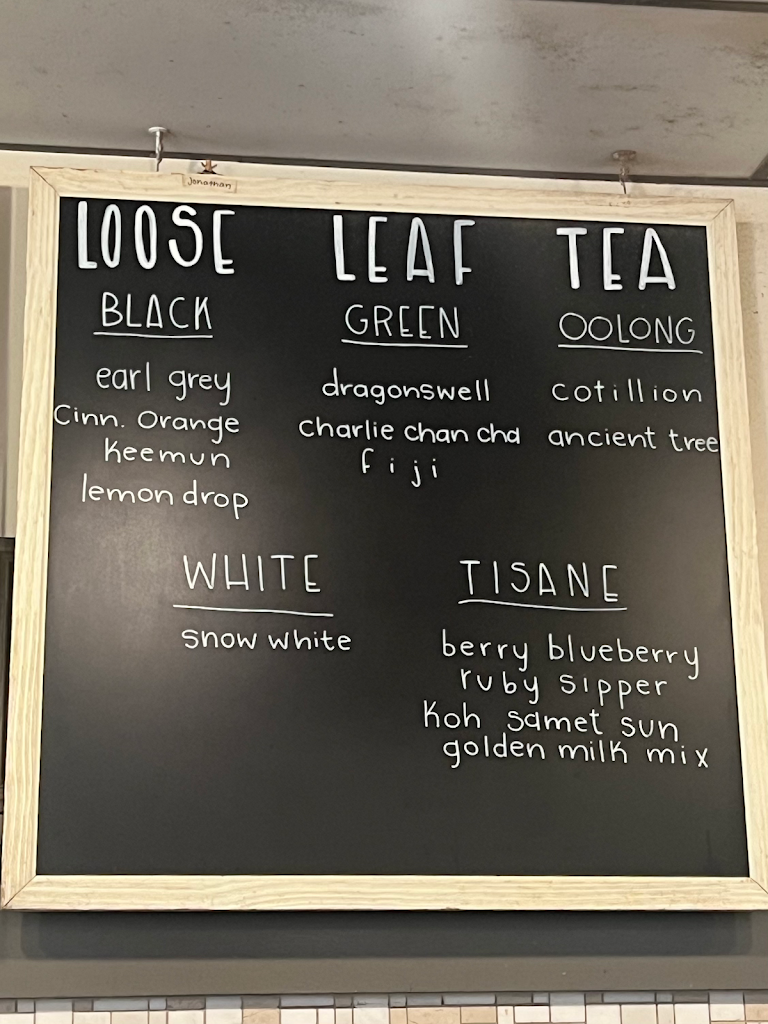 Jonathan
LOOSE LEAF TEA
BLACK
earl grey
Cinn. Orange
keemun
lemon drop
GREEN
dragonswell
charlie chan cha
fiji
OOLONG
cotillion
ancient tree
WHITE
snow white
TISANE
berry blueberry
ruby sipper
Koh samet sun
golden milk mix